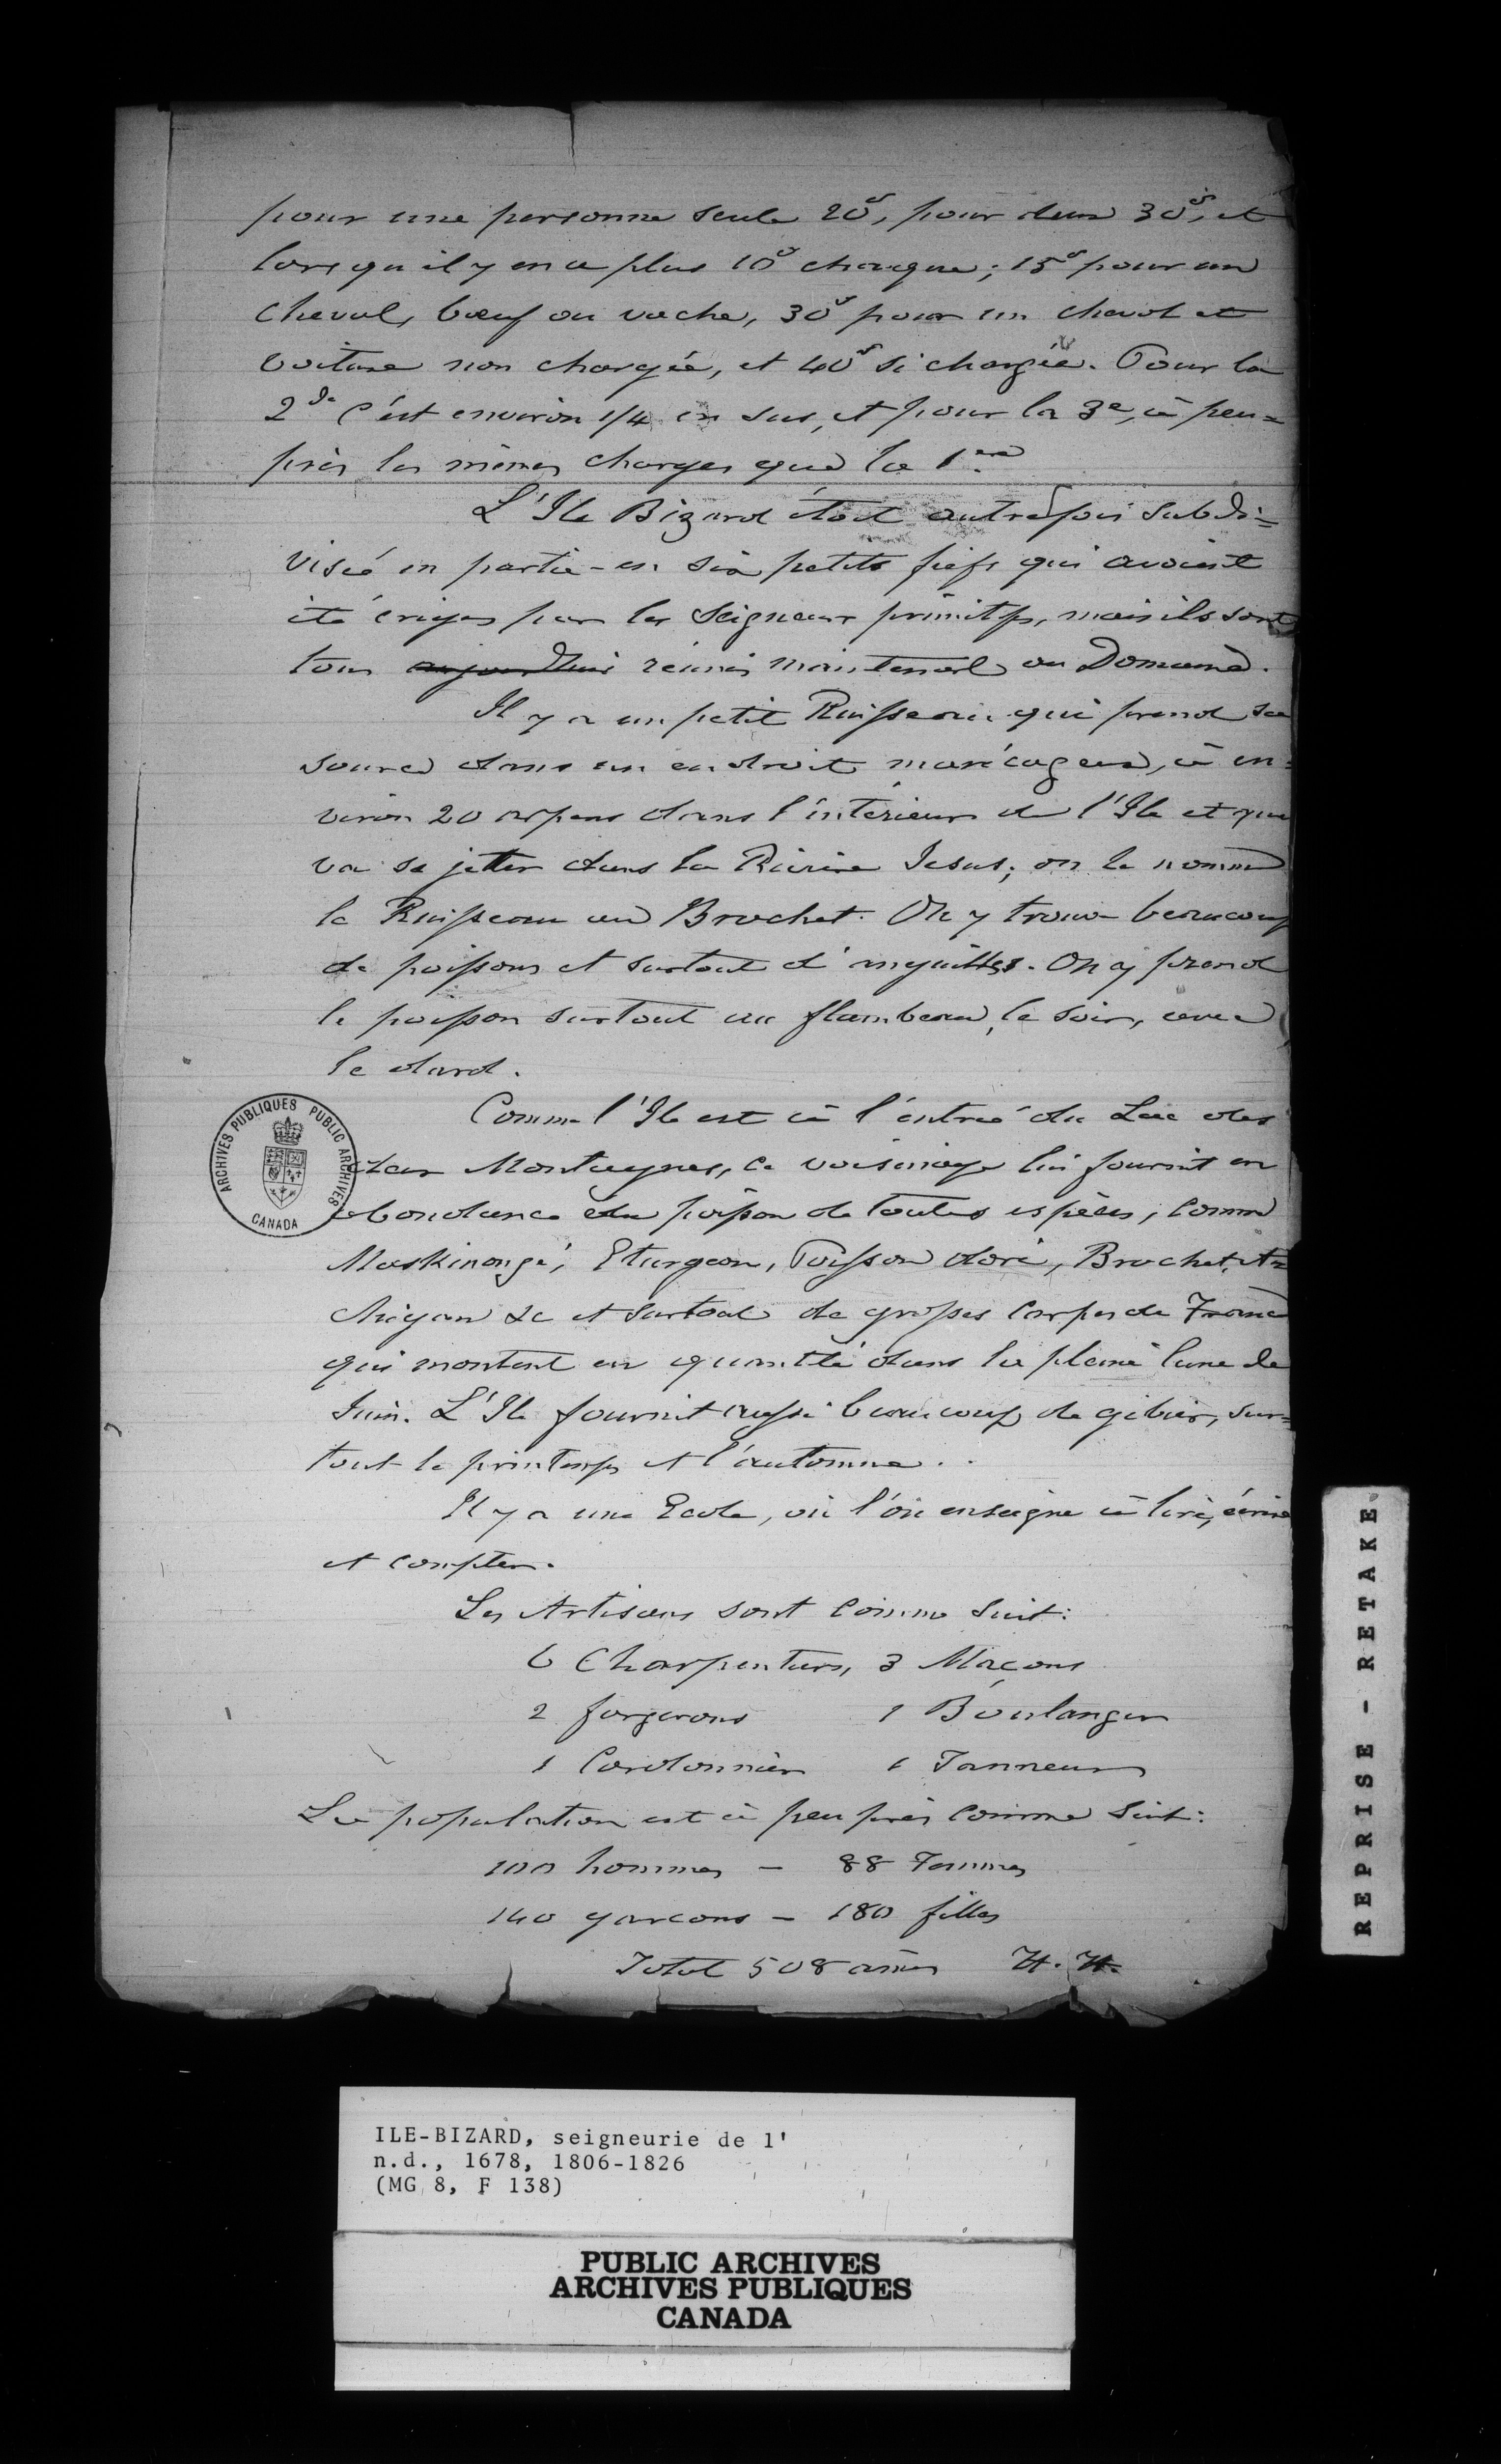 pour une personne seule 20s, pour deux 30s, et
lorsqu'il y en a plus 10s chaque; 15s pour un
cheval, bœuf ou vache, 30s pour un cheval et
voiture non chargée, et 40s si chargée. Pour la
2de c'est environ 1/4 en sus, et pour la 3e, à peu=
près les mêmes charges que la 1ere
L'Ile Bizard étoit autrefois subdi=
visée en partie en six petits fiefs qui avoient
été érigés par les Seigneurs primitifs, mais ils sont
tous aujourdhui réunis maintenant au Domaine.
Il y a un petit Ruisseau qui prend sa
source dans un endroit marécageux, à en=
viron 20 arpens dans l'intérieur de l'Ile et qui
va se jetter dans la Rivière Jesus; on le nomme
le Ruisseau au Brochet. On y trouve beaucoup
de poissons et surtout d'anguilles. On y prend
le poisson surtout au flambeau, le soir, avec
le dard.
Comme l'Ile est à l'entrée du Lac des
deux Montagnes, ce voisinage lui fournit en
abondance du poisson de toutes espèces, comme
Maskinongé, Eturgeon, Poisson doré, Brochet,
chigan &c et surtout de grosses Carpes de France
qui montent en quantité dans la pleine lune de
Juin. L'Ile fournit aussi beaucoup de gibier, sur=
tout le printemps et l'automne.
Il y a une Ecole, où l'on enseigne à lire, écrire
et compter.
Les Artisans sont comme suit:
6 Charpentiers, 3 Maçons
2 forgerons 1 Boulanger
1 Cordonnier 1 Tanneur
La population est à peu près comme suit:
100 hommes - 88 Femmes
140 garcons - 180 filles
Total 508 ames H. H.
ARCHIVES PUBLIQUES PUBLIC ARCHIVES
CANADA
REPRISE - RETAKE
ILE-BIZARD, seigneurie de l'
n.d., 1678, 1806-1826
(MG 8, F 138)
PUBLIC ARCHIVES
ARCHIVES PUBLIQUES
CANADA